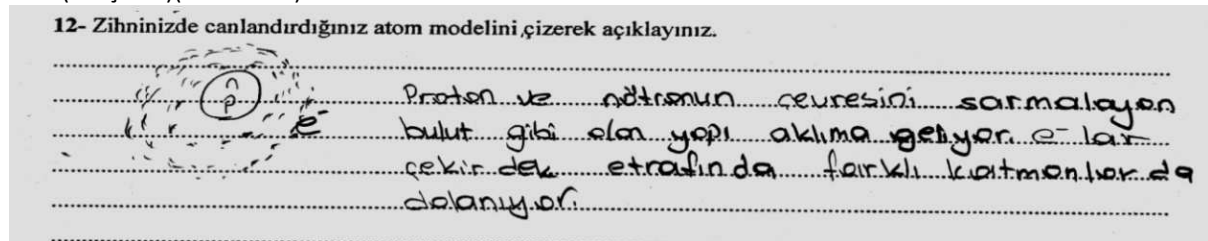 12- Zihninizde canlandırdığınız atom modelini çizerek açıklayınız.
n
p
e⁻
Proton ve nötronun çevresini sarmalayan
bulut gibi olan yapı aklıma geliyor. e⁻ lar
çekirdek etrafında farklı katmanlarda
dolanıyor.